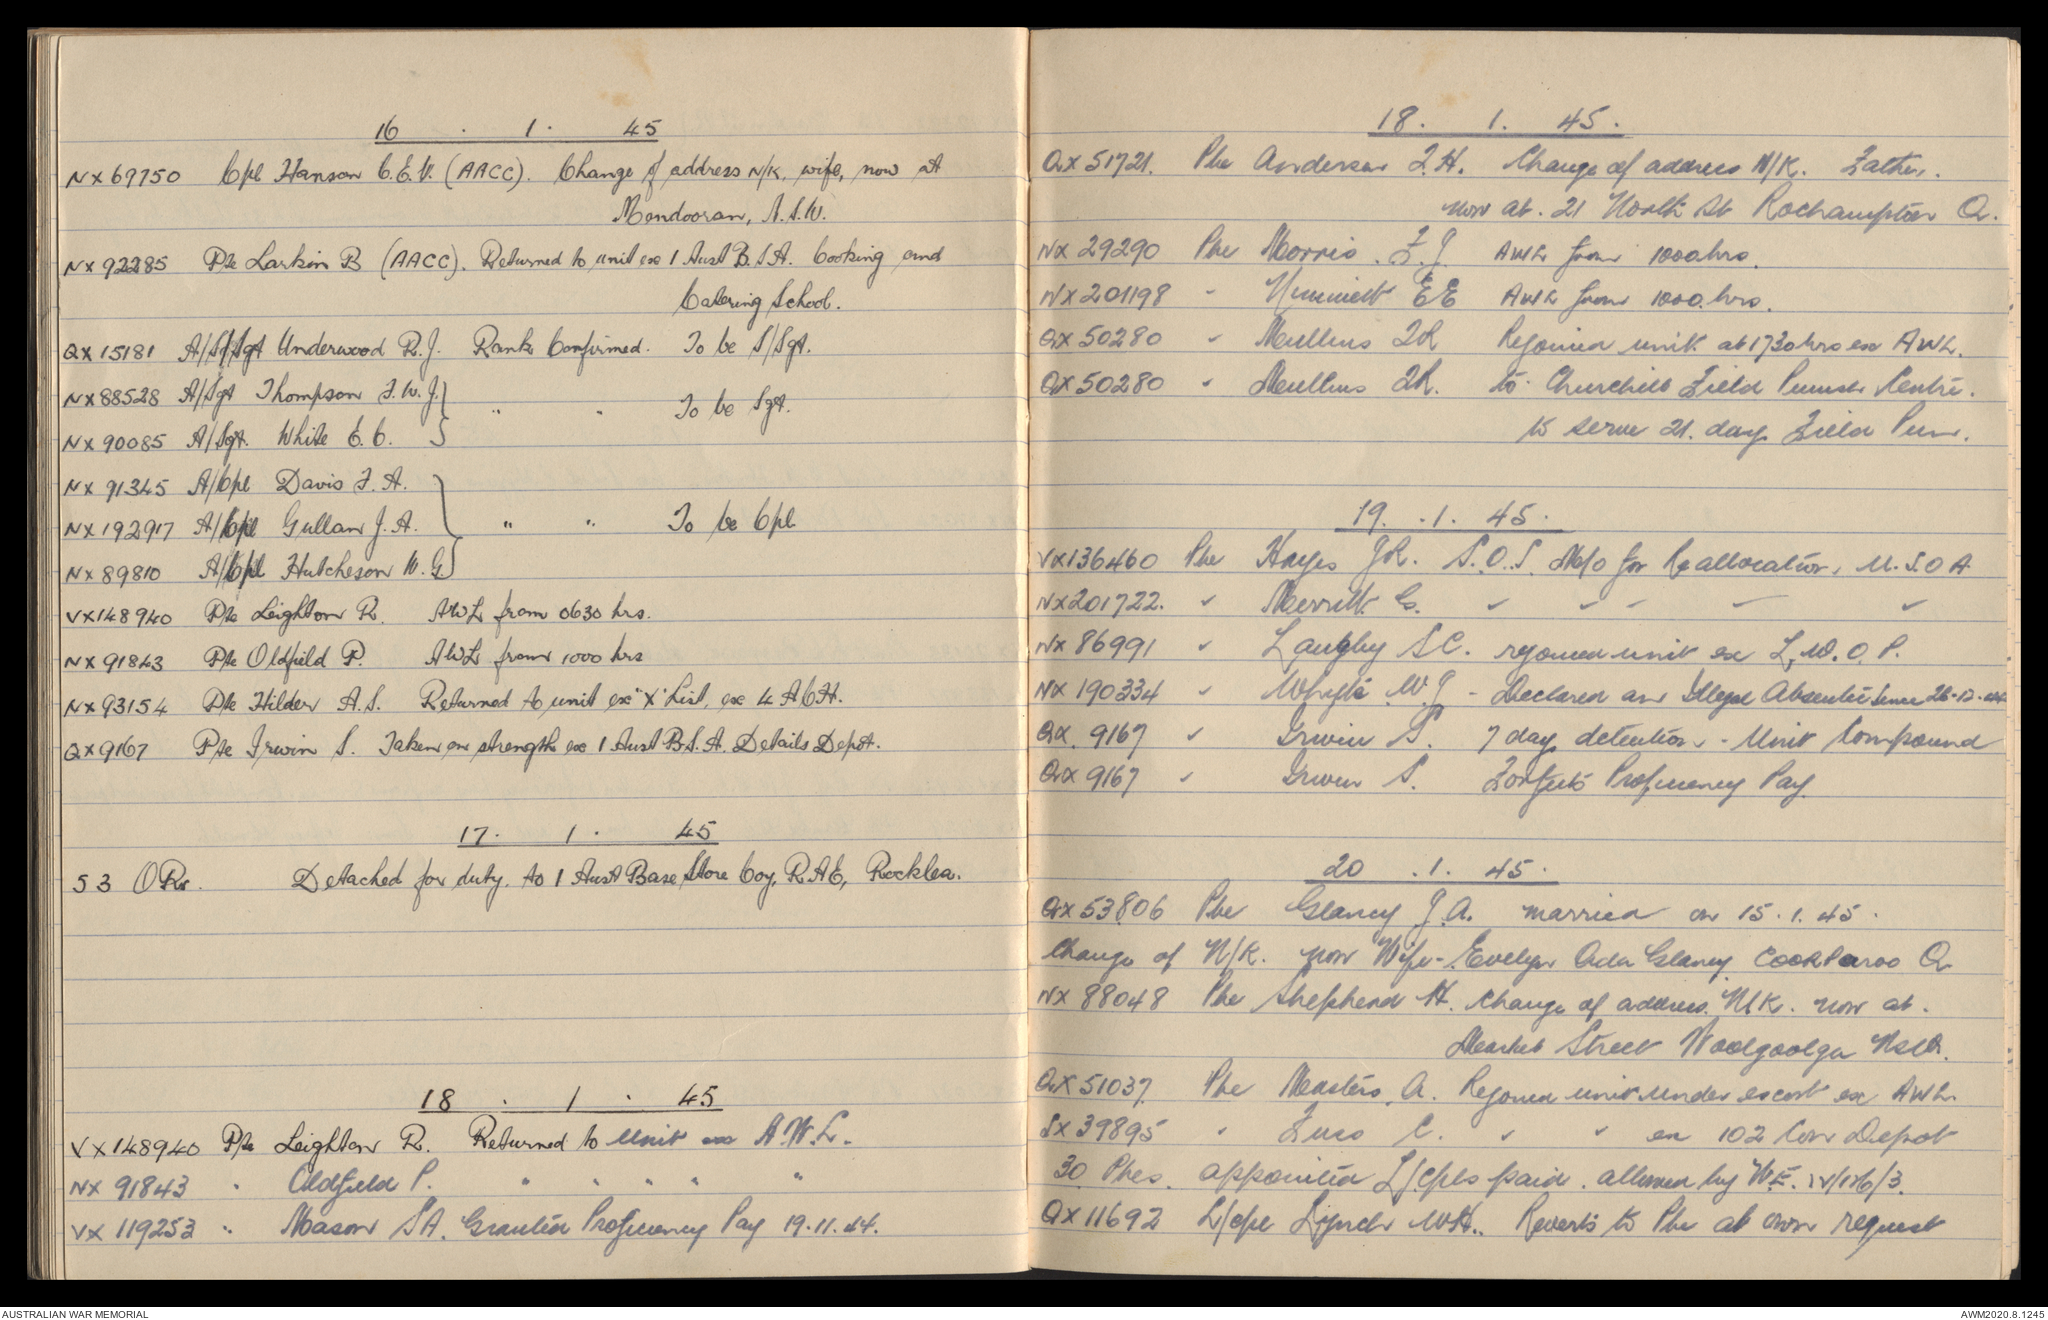 16 . 1 . 45
NX69750 Cpl Hanson C.E.V. (AACC). Change of address N/K, wife, now at
Mendooran, N.S.W.
NX92285 Pte Larkin B (AACC). Returned to unit ex 1 Aust B.S.A. Cooking and
Catering School.
QX15181 A/S/Sgt Underwood R.J. Rank Confirmed. To be S/Sgt.
NX88528 A/Sgt Thompson F.W.J. } " " To be Sgt.
NX90085 A/Sgt. White E.C.
NX91345 A/Cpl Davis F.A.
NX192917 A/Cpl Gullan J.A. } " " To be Cpl
NX89810 A/Cpl Hutcheson W.G.
VX148940 Pte Leighton R. AWL from 0630 hrs.
NX91843 Pte Oldfield P. AWL from 1000 hrs
NX93154 Pte Hilder A.S. Returned to unit ex "X" List, ex 4 ACH.
QX9167 Pte Irwin S. Taken on strength ex 1 Aust B.S.A. Details Depot.
17. 1 . 45
53 ORs. Detached for duty. to 1 Aust Base Store Coy, RAE, Rocklea.
18 . 1 . 45
VX148940 Pte Leighton R. Returned to Unit ex A.W.L.
NX 91843 " Oldfield P. " " " " "
VX 119253 " Mason SA. Granted Proficiency Pay 19.11.44.
18. 1. 45.
QX51721. Pte Anderson F.H. Change of address N/K. Father.
now at. 21 North St Rochampton Q.
NX 29290 Pte Morris. F.J. AWL from 1000hrs.
NX201198 " EE AWL from 1000. hrs.
QX 50280 " Mullins JR Rejoined unit at 1730 hrs ex AWL.
QX50280 " Mullins JR. to Churchill Field Punish Centre.
to serve 21. days Field Pun.
19. .1. 45.
VX136460 Pte Hayes JR. S.O.S. M/o for Reallocation. U.S.O A
NX201722. " Merritt G. " " " " "
NX 86991 " Langby SC. rejoined unit ex L.W.O.P.
NX 190334 " Whyte W J - Declared an Illegal Absentee Since 26-12-44
QX. 9167 " Irwin S. 7 days detention - Unit Compound
QX 9167 " Irwin S. Forfeits Proficiency Pay
20 .1. 45.
QX53806 Pte Glancy J.A. married on 15.1.45.
Change of N/K. now Wife - Evelyn Ada Glancy COORParoo Q
NX 88048 Pte Shepherd H. Change of address. N/K. now at.
Market Street Woolgoolga NSW.
QX51037 Pte Masters. A. Rejoined unit under escort ex AWL.
SX39895 " C. " " ex 102 Con Depot
30 Ptes. appointed L/Cpls paid. allowed by WE.
QX11692 L/Cpl Lynch WH.. Reverts to Pte at own request
AUSTRALIAN WAR MEMORIAL
AWM2020.8.1245